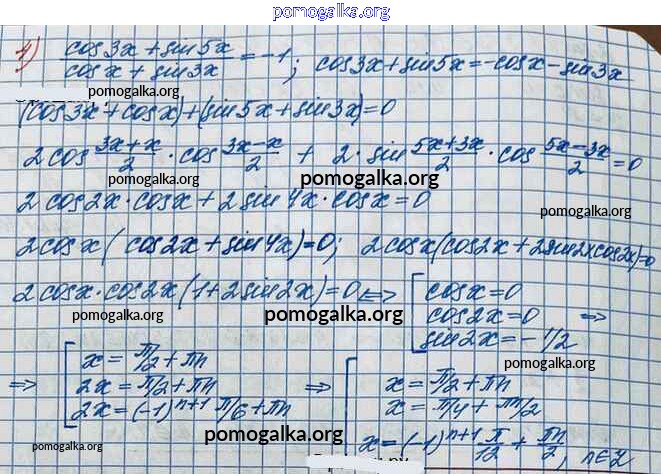 pomogalka.org
4) (cos3x + sin5x)/(cosx + sin3x) = -1; cos3x + sin5x = -cosx - sin3x
pomogalka.org
(cos3x + cosx) + (sin5x + sin3x) = 0
2cos (3x+x)/2 · cos (3x-x)/2 + 2 · sin (5x+3x)/2 · cos (5x-3x)/2 = 0
pomogalka.org pomogalka.org
2cos2x · cosx + 2sin4x · cosx = 0
pomogalka.org
2cosx(cos2x + sin4x) = 0; 2cosx(cos2x + 2sin2xcos2x) = 0
2cosx · cos2x(1 + 2sin2x) = 0 <=> [ cosx = 0
cos2x = 0 =>
pomogalka.org
sin2x = -1/2
=> [ x = π/2 + πn
2x = π/2 + πn =>
2x = (-1)^n+1 π/6 + πn
pomogalka.org
[ x = π/2 + πn
x = π/4 + πn/2
pomogalka.org
x = (-1)^n+1 π/12 + πn/2, n∈Z
pomogalka.org